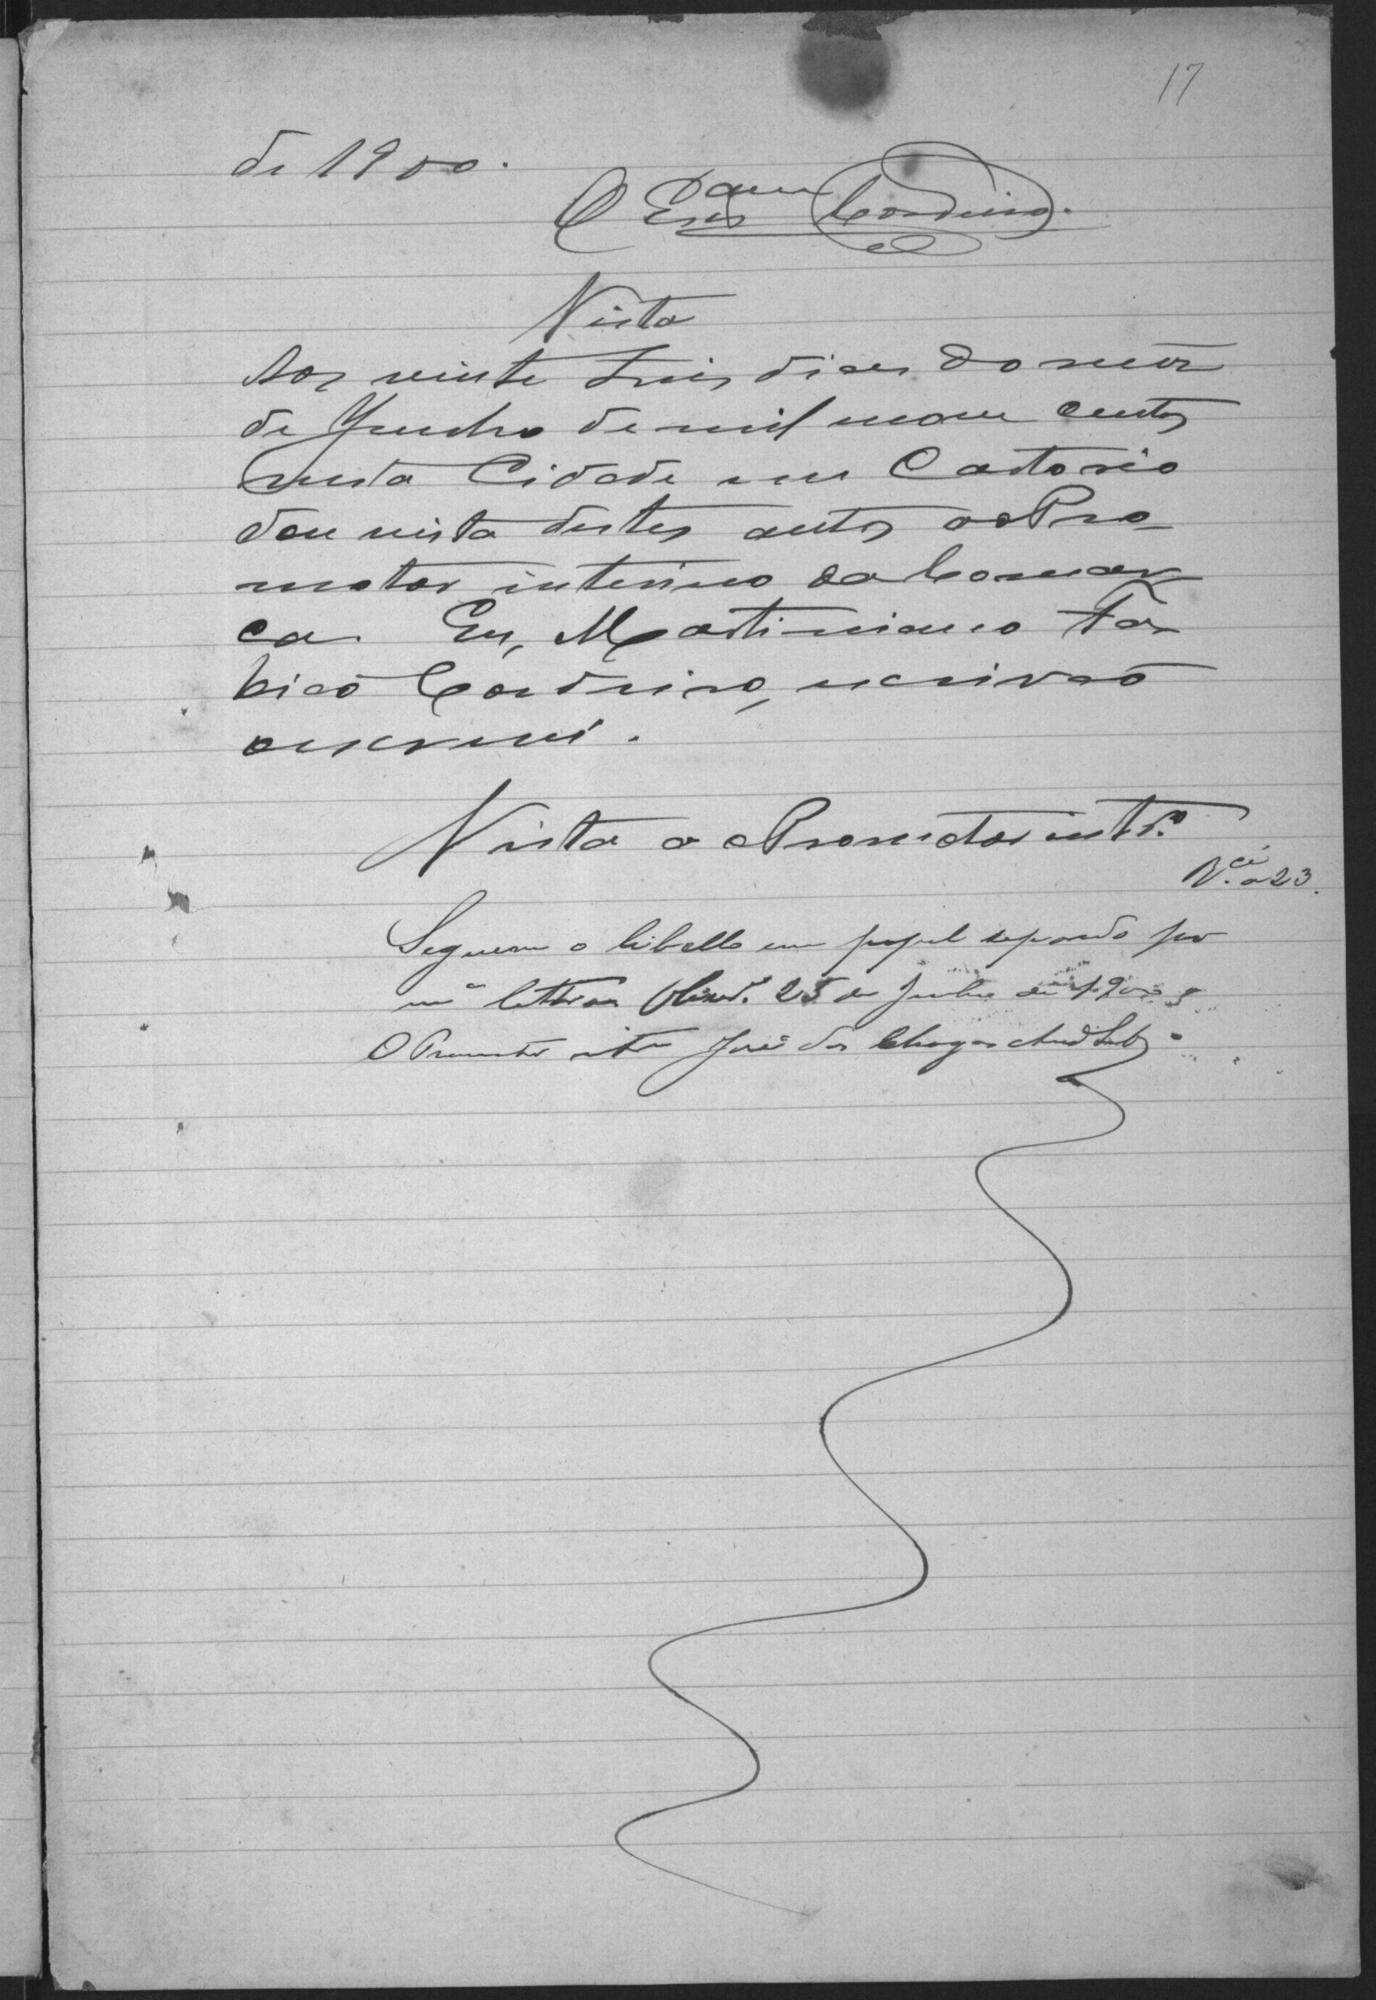 17
de 1900.
O Escam Cordeiro.
Vista
Aos vinte tres dias do mez
de Junho de mil nove centos
nesta Cidade em Cartorio
dou vista destes autos ao Pro
motor interino da Comar
ca. Eu, Martiniano Fa
bicó Cordeiro, escrivão
o escrevi.
Vista o Promotor int.º
R.ci a 23.
Seguem o libello em papel separado por
m.ª lettra 25 de Junho de 1900
O Promotor José das Chagas